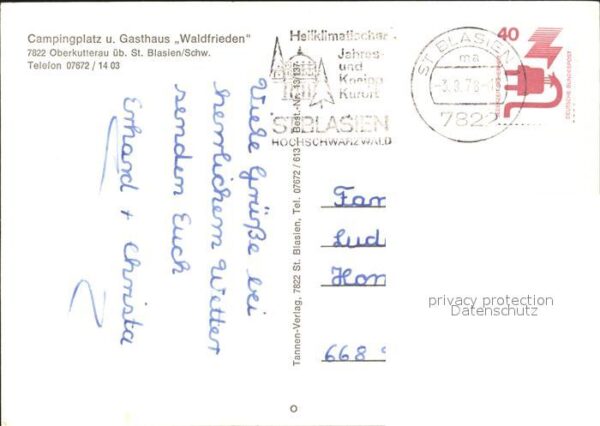 Campingplatz u. Gasthaus „Waldfrieden"
7822 Oberkutterau üb. St. Blasien/Schw.
Telefon 07672 / 14 03
Viele Grüße bei
herrlichem Wetter
senden Euch
Erhard + Christa
Tannen-Verlag, 7822 St. Blasien, Tel. 07672 / 613 Best.-Nr. 13/137
Heilklimatischer
Jahres-
und
Kneipp
Kurort
ST. BLASIEN
HOCHSCHWARZWALD
ST BLASIEN
ma
-3.3.78
7822
40
DEUTSCHE BUNDESPOST
Fam
Lud
Hom
668
privacy protection
Datenschutz